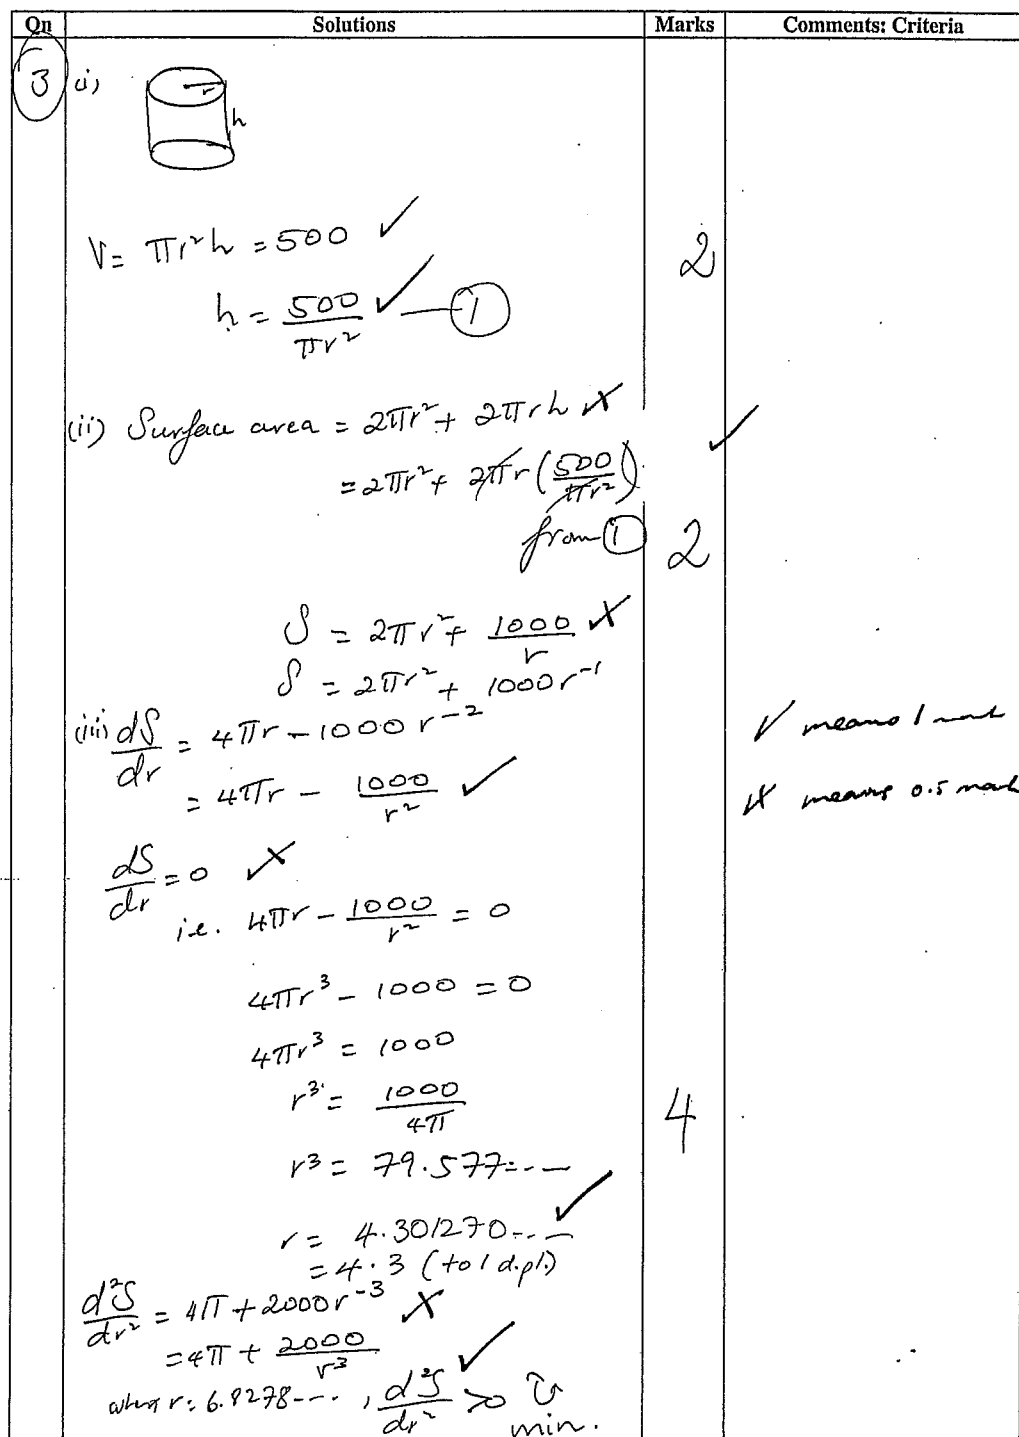 Qn Solutions Marks Comments: Criteria
3 (i)
r
h
V = πr²h = 500 ✓
2
h = 500/πr² ✓ — ①
(ii) Surface area = 2πr² + 2πrh ✗
✓
= 2πr² + 2πr (500/πr²)
from ①
2
S = 2πr² + 1000/r ✗
S = 2πr² + 1000r⁻¹
(iii) dS/dr = 4πr - 1000r⁻²
✓ means 1 mark
= 4πr - 1000/r² ✓
✗ means 0.5 mark
dS/dr = 0 ✗
i.e. 4πr - 1000/r² = 0
4πr³ - 1000 = 0
4πr³ = 1000
r³ = 1000/4π
4
r³ = 79.577...
r = 4.301270... ✓
= 4.3 (to 1 d.pl.)
d²S/dr² = 4π + 2000r⁻³ ✗
= 4π + 2000/r³
when r = 6.8278..., d²S/dr² > 0 ✓
min.